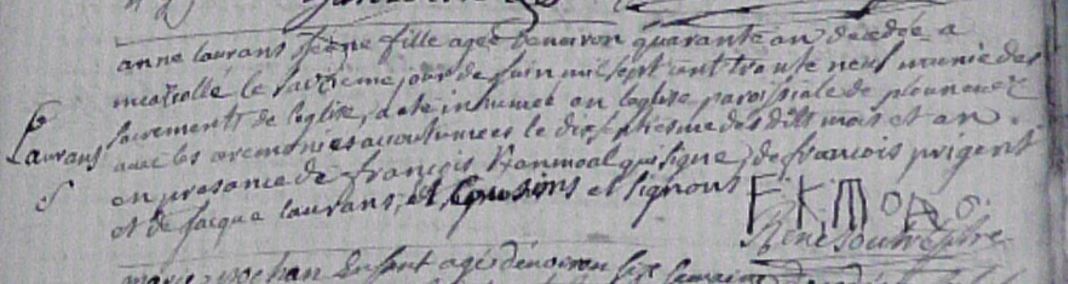 anne laurans jeune fille agée denviron quarante an decedée a
le saiziéme jour de juin mil sept cent trente neuf munie des
Laurans
sacrements de leglise, a eté inhumeé en leglise paroissiale de plounevez
avec les ceremonies accoutumées le dixseptiesme des dits mois et an
en presance de françois Kanmoal qui signe, de francois prigent
et de jacque laurans, et cousins et signons
F K M O A
René Prêtre
marie enfant agé denviron six semaine